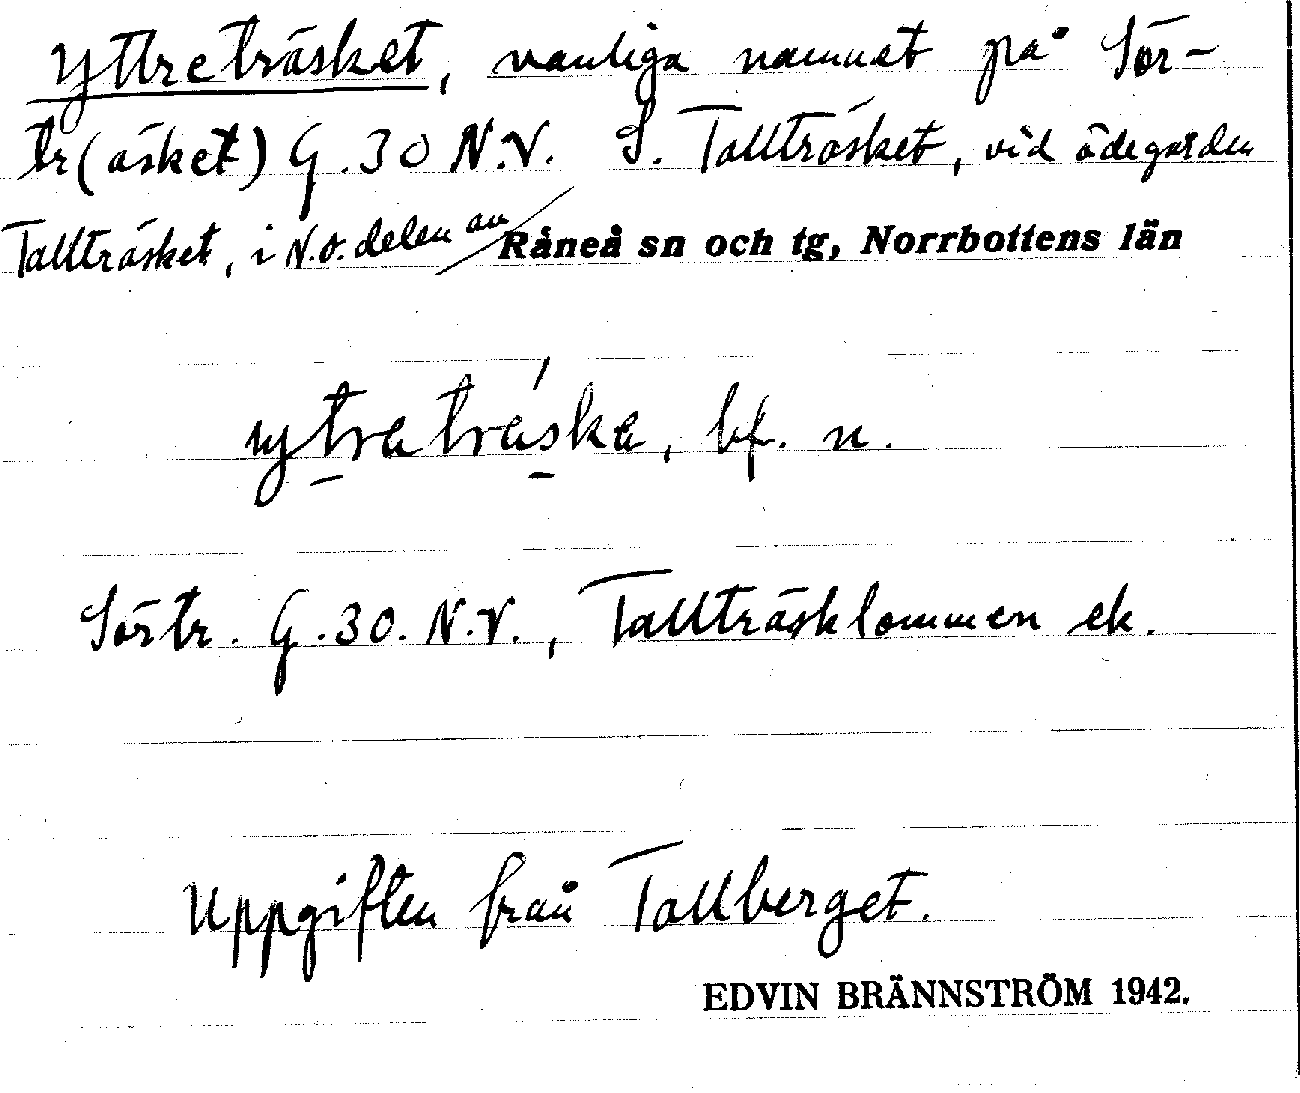 Yttreträsket, vanliga namnet på Sör-
tr(äsket) G.30 N.V. S. Tallträsket, vid ödegården
Tallträsket, i N.ö. delen av Råneå sn och tg, Norrbottens län
ytraträska, bf. n.
Sörtr. G.30. N.V., Tallträsklommen ek.
Uppgiften från Tallberget.
EDVIN BRÄNNSTRÖM 1942.